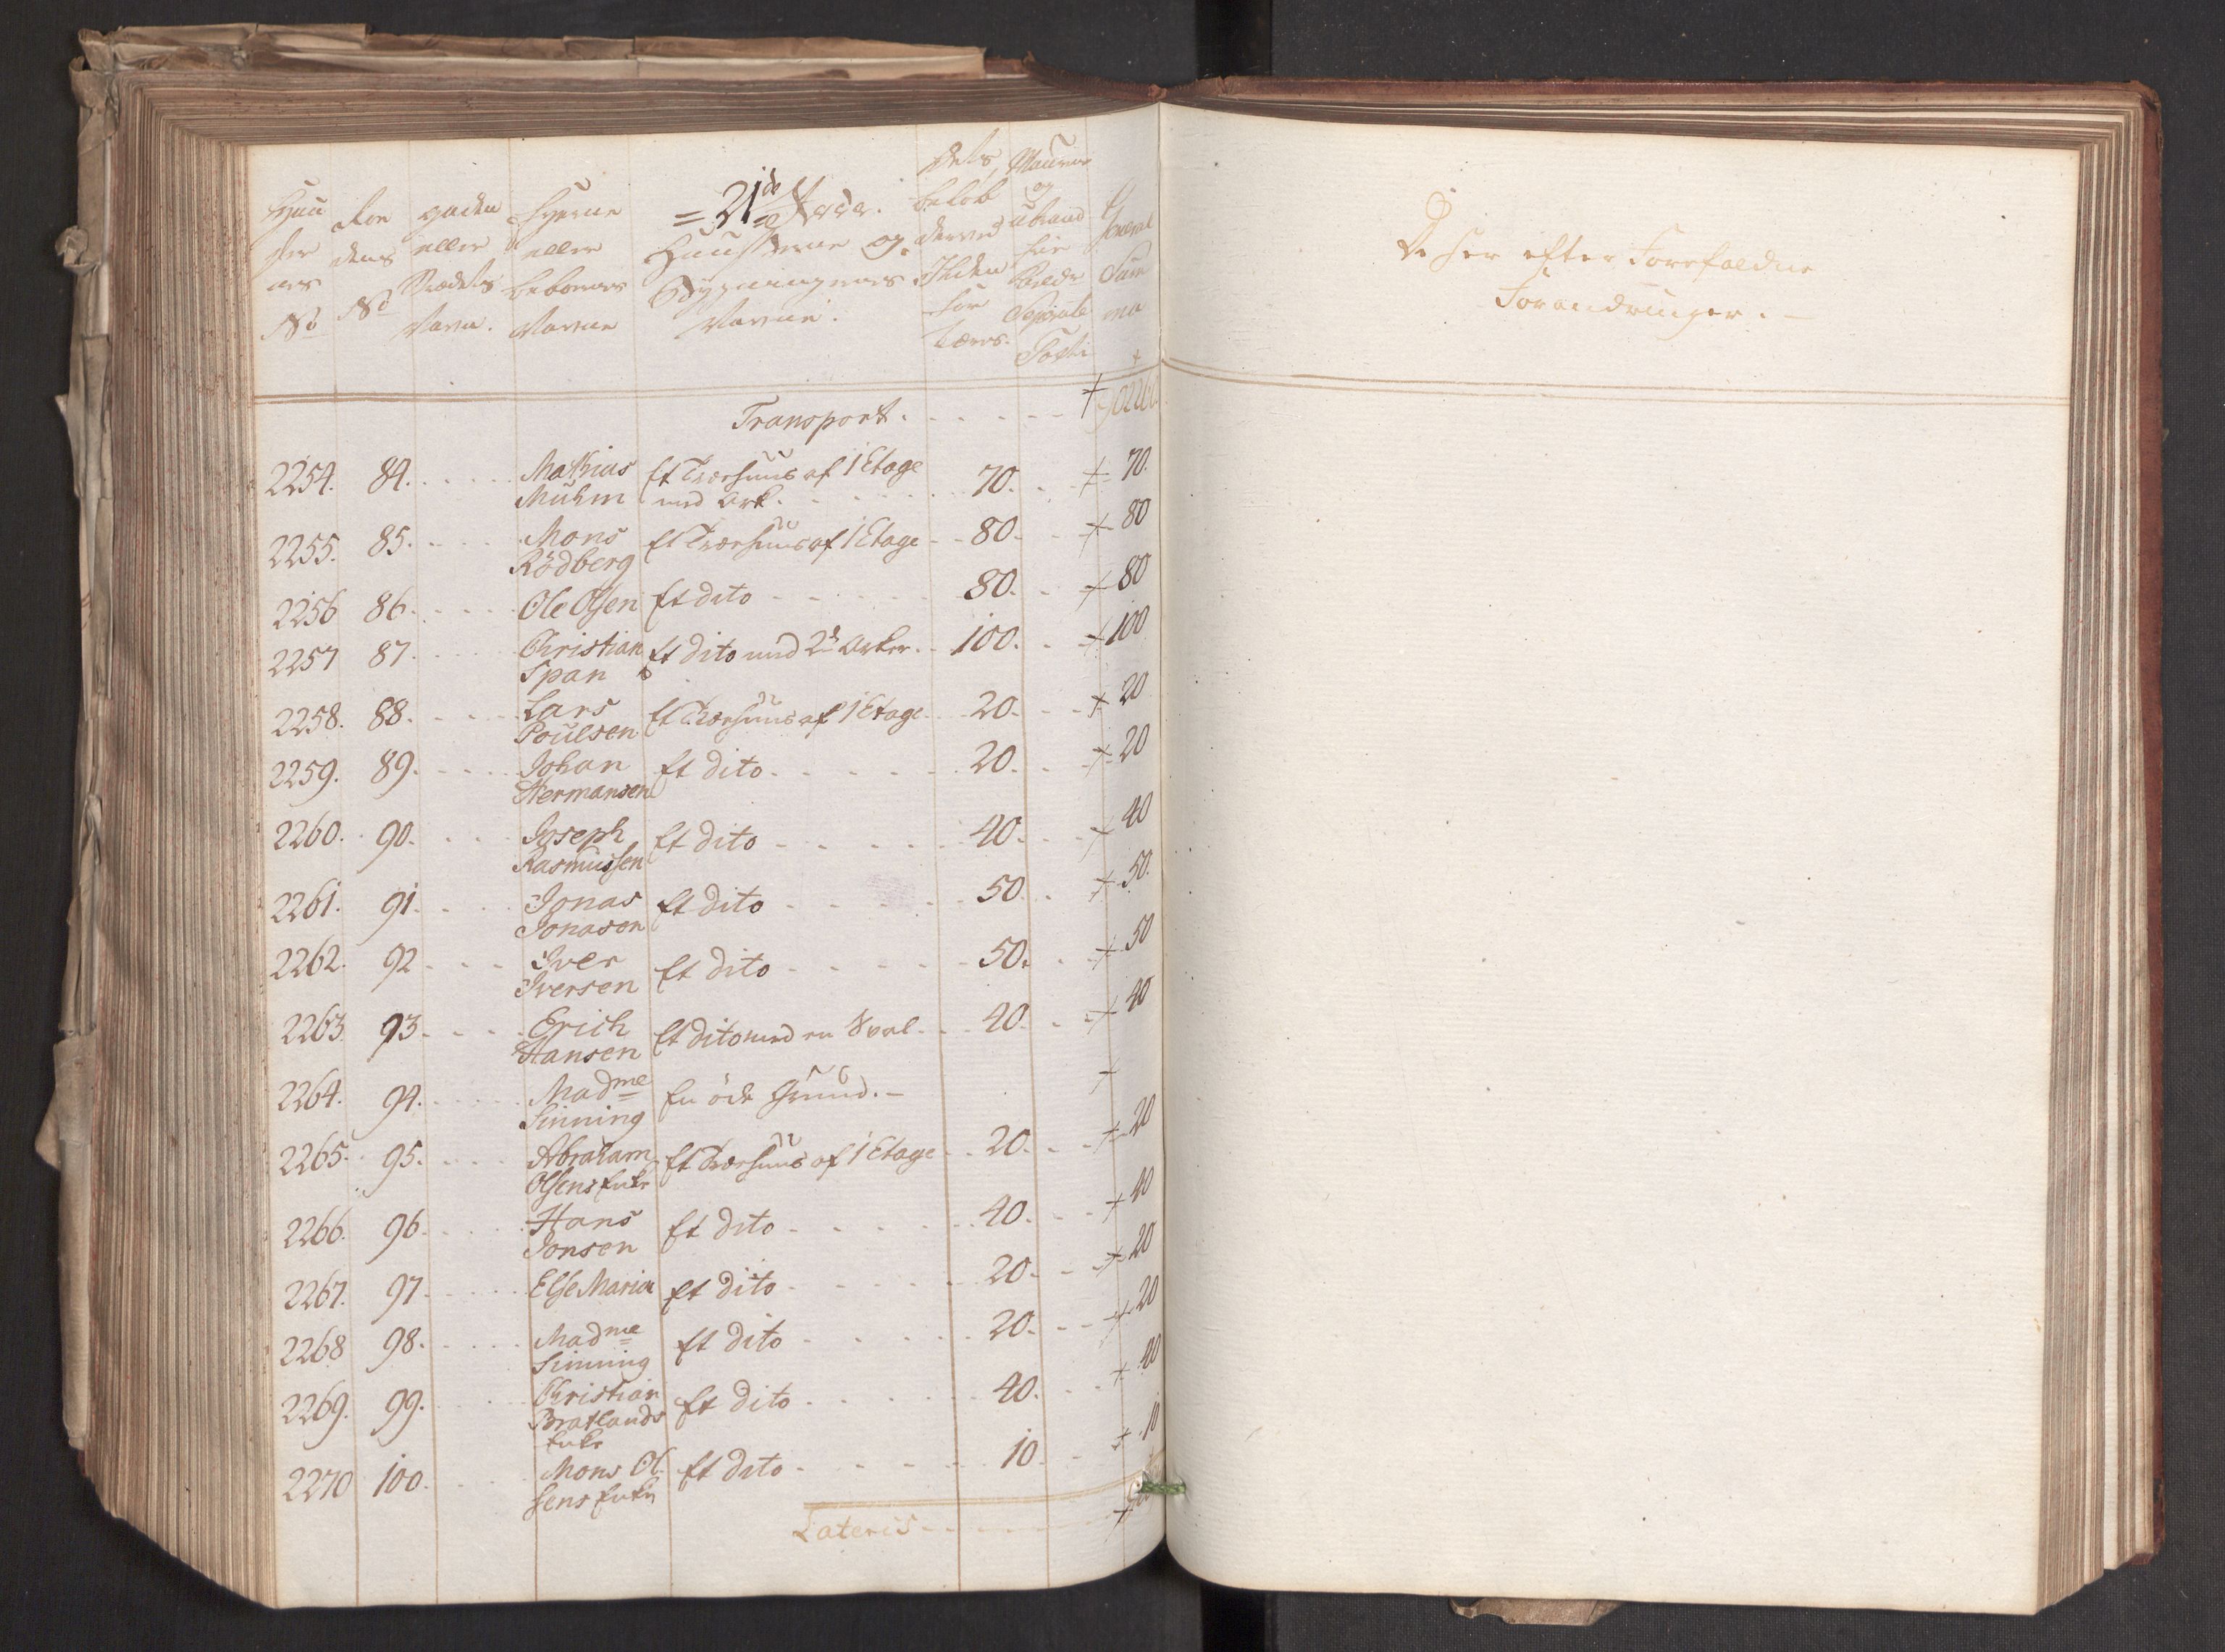 = 21de Rode.
Huusernes No
Rodens No
gadens eller Strædets Navn.
Eyerne eller beboernes Navne
Huusserne og Bygningernes Navne.
Dets beløb derved Ilden for
General Summa
Transport. +
2254. 84. Mathias Muhm Et Træehuus af 1 Etage med Ark. 70. + 70.
2255. 85. Mons Rödberg Et Træehuus af 1 Etage 80. + 80
2256 86. Ole Olsen Et dito 80. + 80
2257 87. Christian Span Et dito med 2de Arker. 100. + 100
2258. 88. Lars Poulsen Et Træehuus af 1 Etage 20. + 20
2259. 89. Johan Hermansen Et dito 20. + 20
2260. 90. Joseph Rasmussen Et dito 40. + 40
2261. 91. Jonas Jonason Et dito 50. + 50.
2262. 92 Iver Iversen Et dito 50. + 50
2263. 93. Erich Hansen Et dito med en Sval 40. + 40
2264. 94. Madme Sinning En öde Grund. +
2265. 95. Abraham Olsens Enke Et Træehuus af 1 Etage 20. + 20
2266. 96. Hans Jonsen Et dito 40. + 40
2267. 97. Else Maria Et dito 20. + 20
2268 98. Madme Sinning Et dito 20. + 20
2269. 99. Christian Bratlands Enke Et dito 40. + 40
2270 100. Mons Olsens Enke Et dito 10. + 10
Lateris +
De her efter Forefaldne
Forandringer.